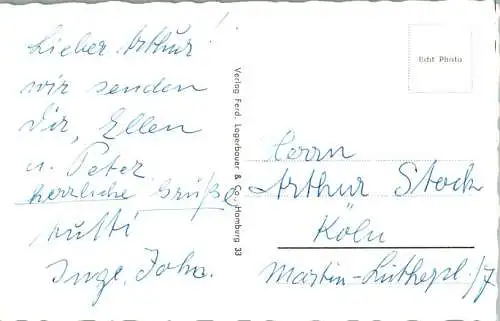 Lieber Arthur!
wir senden
Dir, Ellen
u. Peter
herzliche Grüße
Mutti
Inge, John.
Verlag Ferd. Lagerbauer & Co., Hamburg 33
Echt Photo
Herrn
Arthur Stock
Köln
Martin-Lutherpl./7